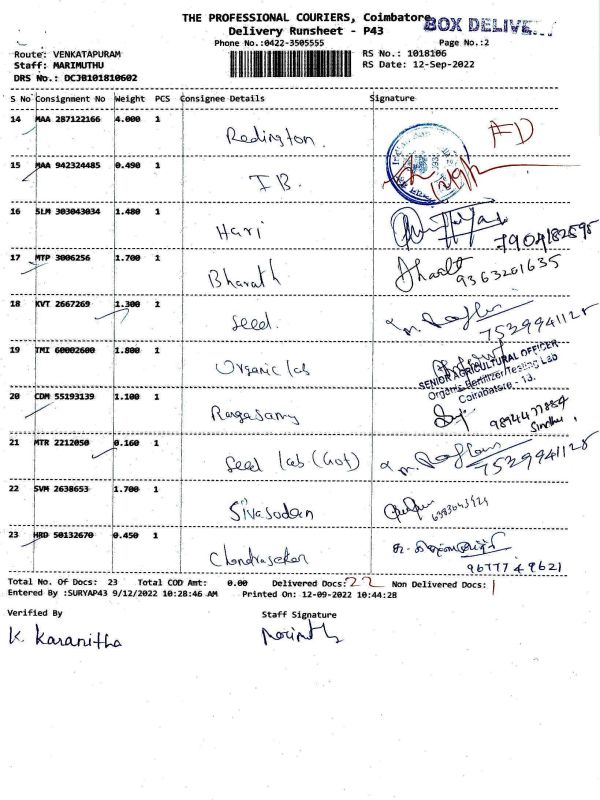 THE PROFESSIONAL COURIERS, Coimbatore
BOX DELIVERY
Delivery Runsheet - P43
Phone No.:0422-3505555 Page No.:2
Route: VENKATAPURAM RS No.: 1018106
Staff: MARIMUTHU RS Date: 12-Sep-2022
DRS No.: DCJB101810602
S No Consignment No Weight PCS Consignee Details Signature
14 MAA 287122166 4.000 1
Redington. FD
15 MAA 942324485 0.490 1
IB.
16 SLM 303043034 1.480 1
Hari 7904182595
17 MTP 3006256 1.700 1
Bharath 9363201635
18 KVT 2667269 1.300 1
Seed. 7539941125
19 TMI 60002600 1.800 1
Organic lab
SENIOR AGRICULTURAL OFFICER
Organic Fertilizer Testing Lab
Coimbatore - 13.
20 CDM 55193139 1.100 1
Rangasamy 9894477854
Sindhu
21 MTR 2212050 0.160 1
Seed lab (Got) 7539941125
22 SVM 2638653 1.700 1
Sivasodan
23 HRD 50132670 0.450 1
Chandrasekar 9677749621
Total No. Of Docs: 23 Total COD Amt: 0.00 Delivered Docs: 22 Non Delivered Docs: 1
Entered By :SURYAP43 9/12/2022 10:28:46 AM Printed On: 12-09-2022 10:44:28
Verified By Staff Signature
K. Karanitha